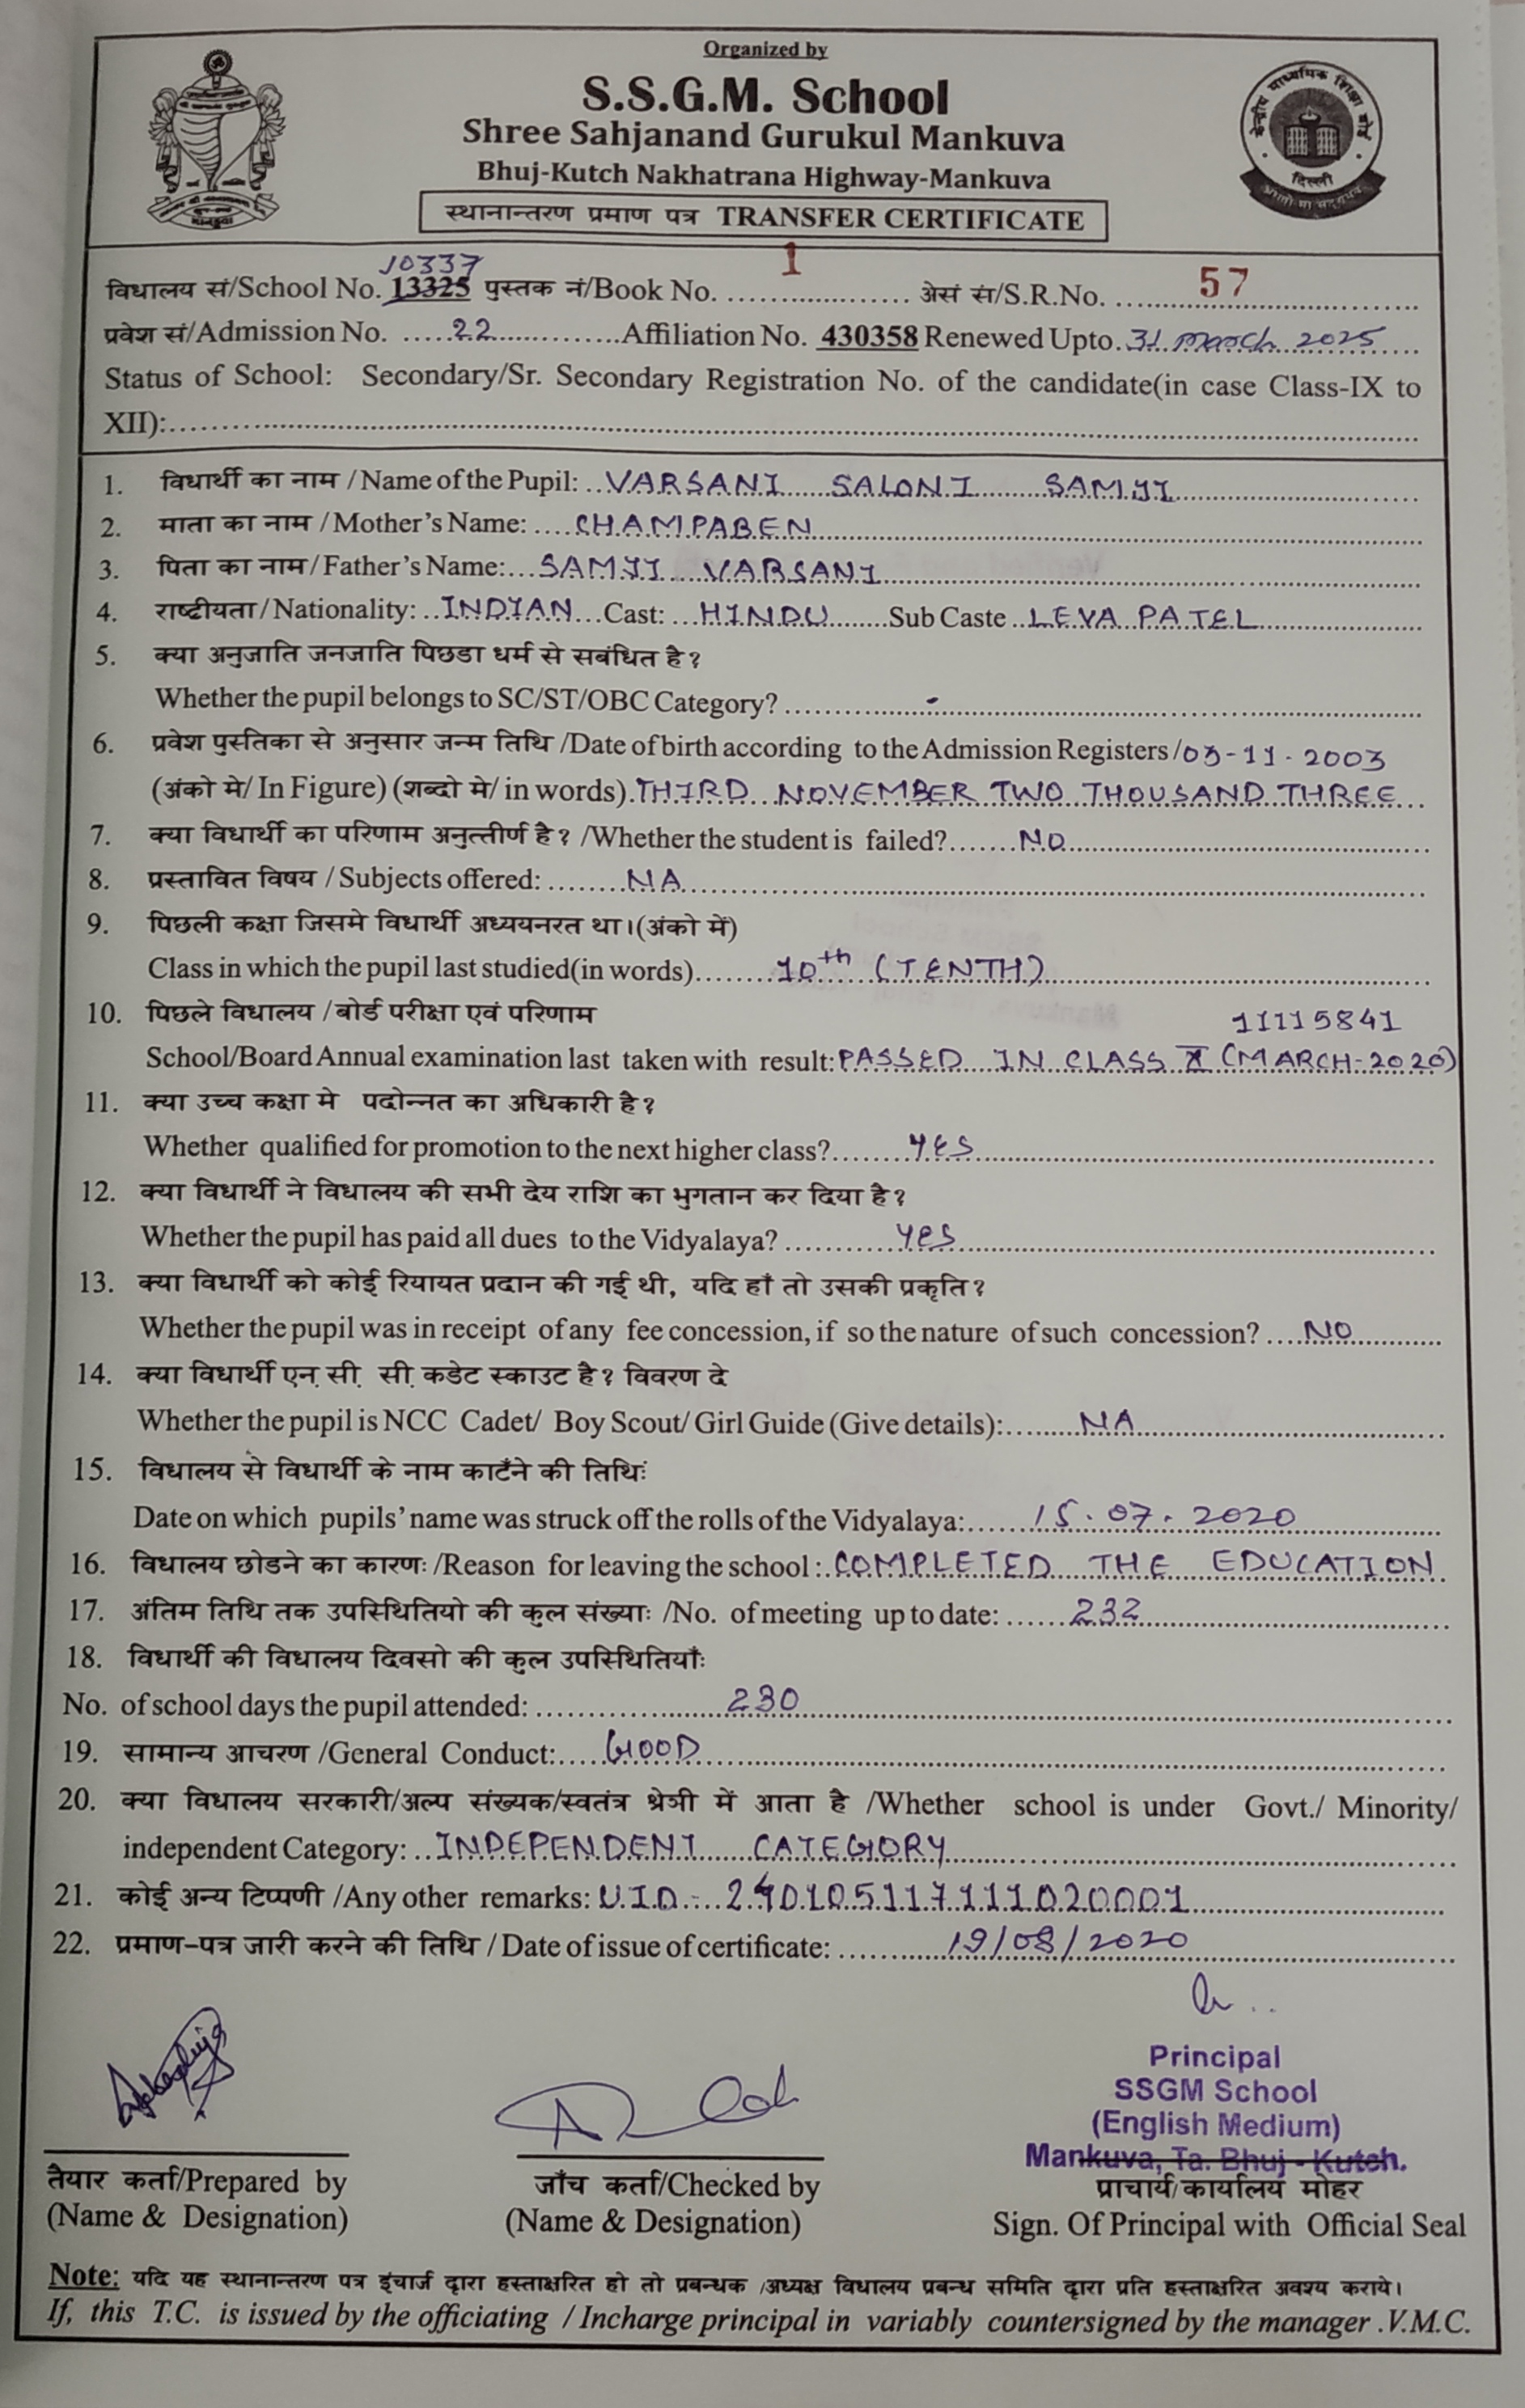 Organized by
S.S.G.M. School
Shree Sahjanand Gurukul Mankuva
Bhuj-Kutch Nakhatrana Highway-Mankuva
स्थानान्तरण प्रमाण पत्र TRANSFER CERTIFICATE
केन्द्रीय माध्यमिक शिक्षा बोर्ड
दिल्ली
10337
विधालय सं/School No. 13325 पुस्तक नं/Book No. 1 अेसं सं/S.R.No. 57
प्रवेश सं/Admission No. 22 Affiliation No. 430358 Renewed Upto. 31 march 2025
Status of School: Secondary/Sr. Secondary Registration No. of the candidate(in case Class-IX to
XII):
1. विधार्थी का नाम /Name of the Pupil: VARSANI SALONI SAMJI
2. माता का नाम /Mother's Name: CHAMPABEN
3. पिता का नाम/Father's Name: SAMJI VARSANI
4. राष्टीयता/Nationality: INDIAN Cast: HINDU Sub Caste LEVA PATEL
5. क्या अनुजाति जनजाति पिछडा धर्म से सबंधित है?
Whether the pupil belongs to SC/ST/OBC Category? -
6. प्रवेश पुस्तिका से अनुसार जन्म तिथि /Date of birth according to the Admission Registers/03-11-2003
(अंको मे/ In Figure) (शब्दो मे/ in words) THIRD NOVEMBER TWO THOUSAND THREE
7. क्या विधार्थी का परिणाम अनुत्तीर्ण है? /Whether the student is failed? NO
8. प्रस्तावित विषय /Subjects offered: NA
9. पिछली कक्षा जिसमे विधार्थी अध्ययनरत था।(अंको में)
Class in which the pupil last studied(in words) 10th (TENTH)
10. पिछले विधालय /बोर्ड परीक्षा एवं परिणाम 11115841
School/Board Annual examination last taken with result: PASSED IN CLASS X (MARCH-2020)
11. क्या उच्च कक्षा मे पदोन्नत का अधिकारी है?
Whether qualified for promotion to the next higher class? YES
12. क्या विधार्थी ने विधालय की सभी देय राशि का भुगतान कर दिया है?
Whether the pupil has paid all dues to the Vidyalaya? YES
13. क्या विधार्थी को कोई रियायत प्रदान की गई थी, यदि हाँ तो उसकी प्रकृति?
Whether the pupil was in receipt of any fee concession, if so the nature of such concession? NO
14. क्या विधार्थी एन. सी. सी. कडेट स्काउट है? विवरण दे
Whether the pupil is NCC Cadet/ Boy Scout/ Girl Guide (Give details): NA
15. विधालय से विधार्थी के नाम काटँने की तिथिः
Date on which pupils' name was struck off the rolls of the Vidyalaya: 15.07.2020
16. विधालय छोडने का कारणः /Reason for leaving the school: COMPLETED THE EDUCATION
17. अंतिम तिथि तक उपस्थितियो की कुल संख्याः /No. of meeting up to date: 232
18. विधार्थी की विधालय दिवसो की कुल उपस्थितियाँः
No. of school days the pupil attended: 230
19. सामान्य आचरण /General Conduct: GOOD
20. क्या विधालय सरकारी/अल्प संख्यक/स्वतंत्र श्रेञी में आता है /Whether school is under Govt./ Minority/
independent Category: INDEPENDENT CATEGORY
21. कोई अन्य टिप्पणी /Any other remarks: U.I.D - 240105117111020001
22. प्रमाण-पत्र जारी करने की तिथि /Date of issue of certificate: 19/08/2020
Principal
SSGM School
(English Medium)
Mankuva, Ta. Bhuj - Kutch.
तैयार कर्ता/Prepared by
(Name & Designation)
जाँच कर्ता/Checked by
(Name & Designation)
प्राचार्य/कार्यालय मोहर
Sign. Of Principal with Official Seal
Note: यदि यह स्थानान्तरण पत्र इंचार्ज द्वारा हस्ताक्षरित हो तो प्रबन्धक /अध्यक्ष विधालय प्रबन्ध समिति द्वारा प्रति हस्ताक्षरित अवश्य कराये।
If, this T.C. is issued by the officiating / Incharge principal in variably countersigned by the manager .V.M.C.